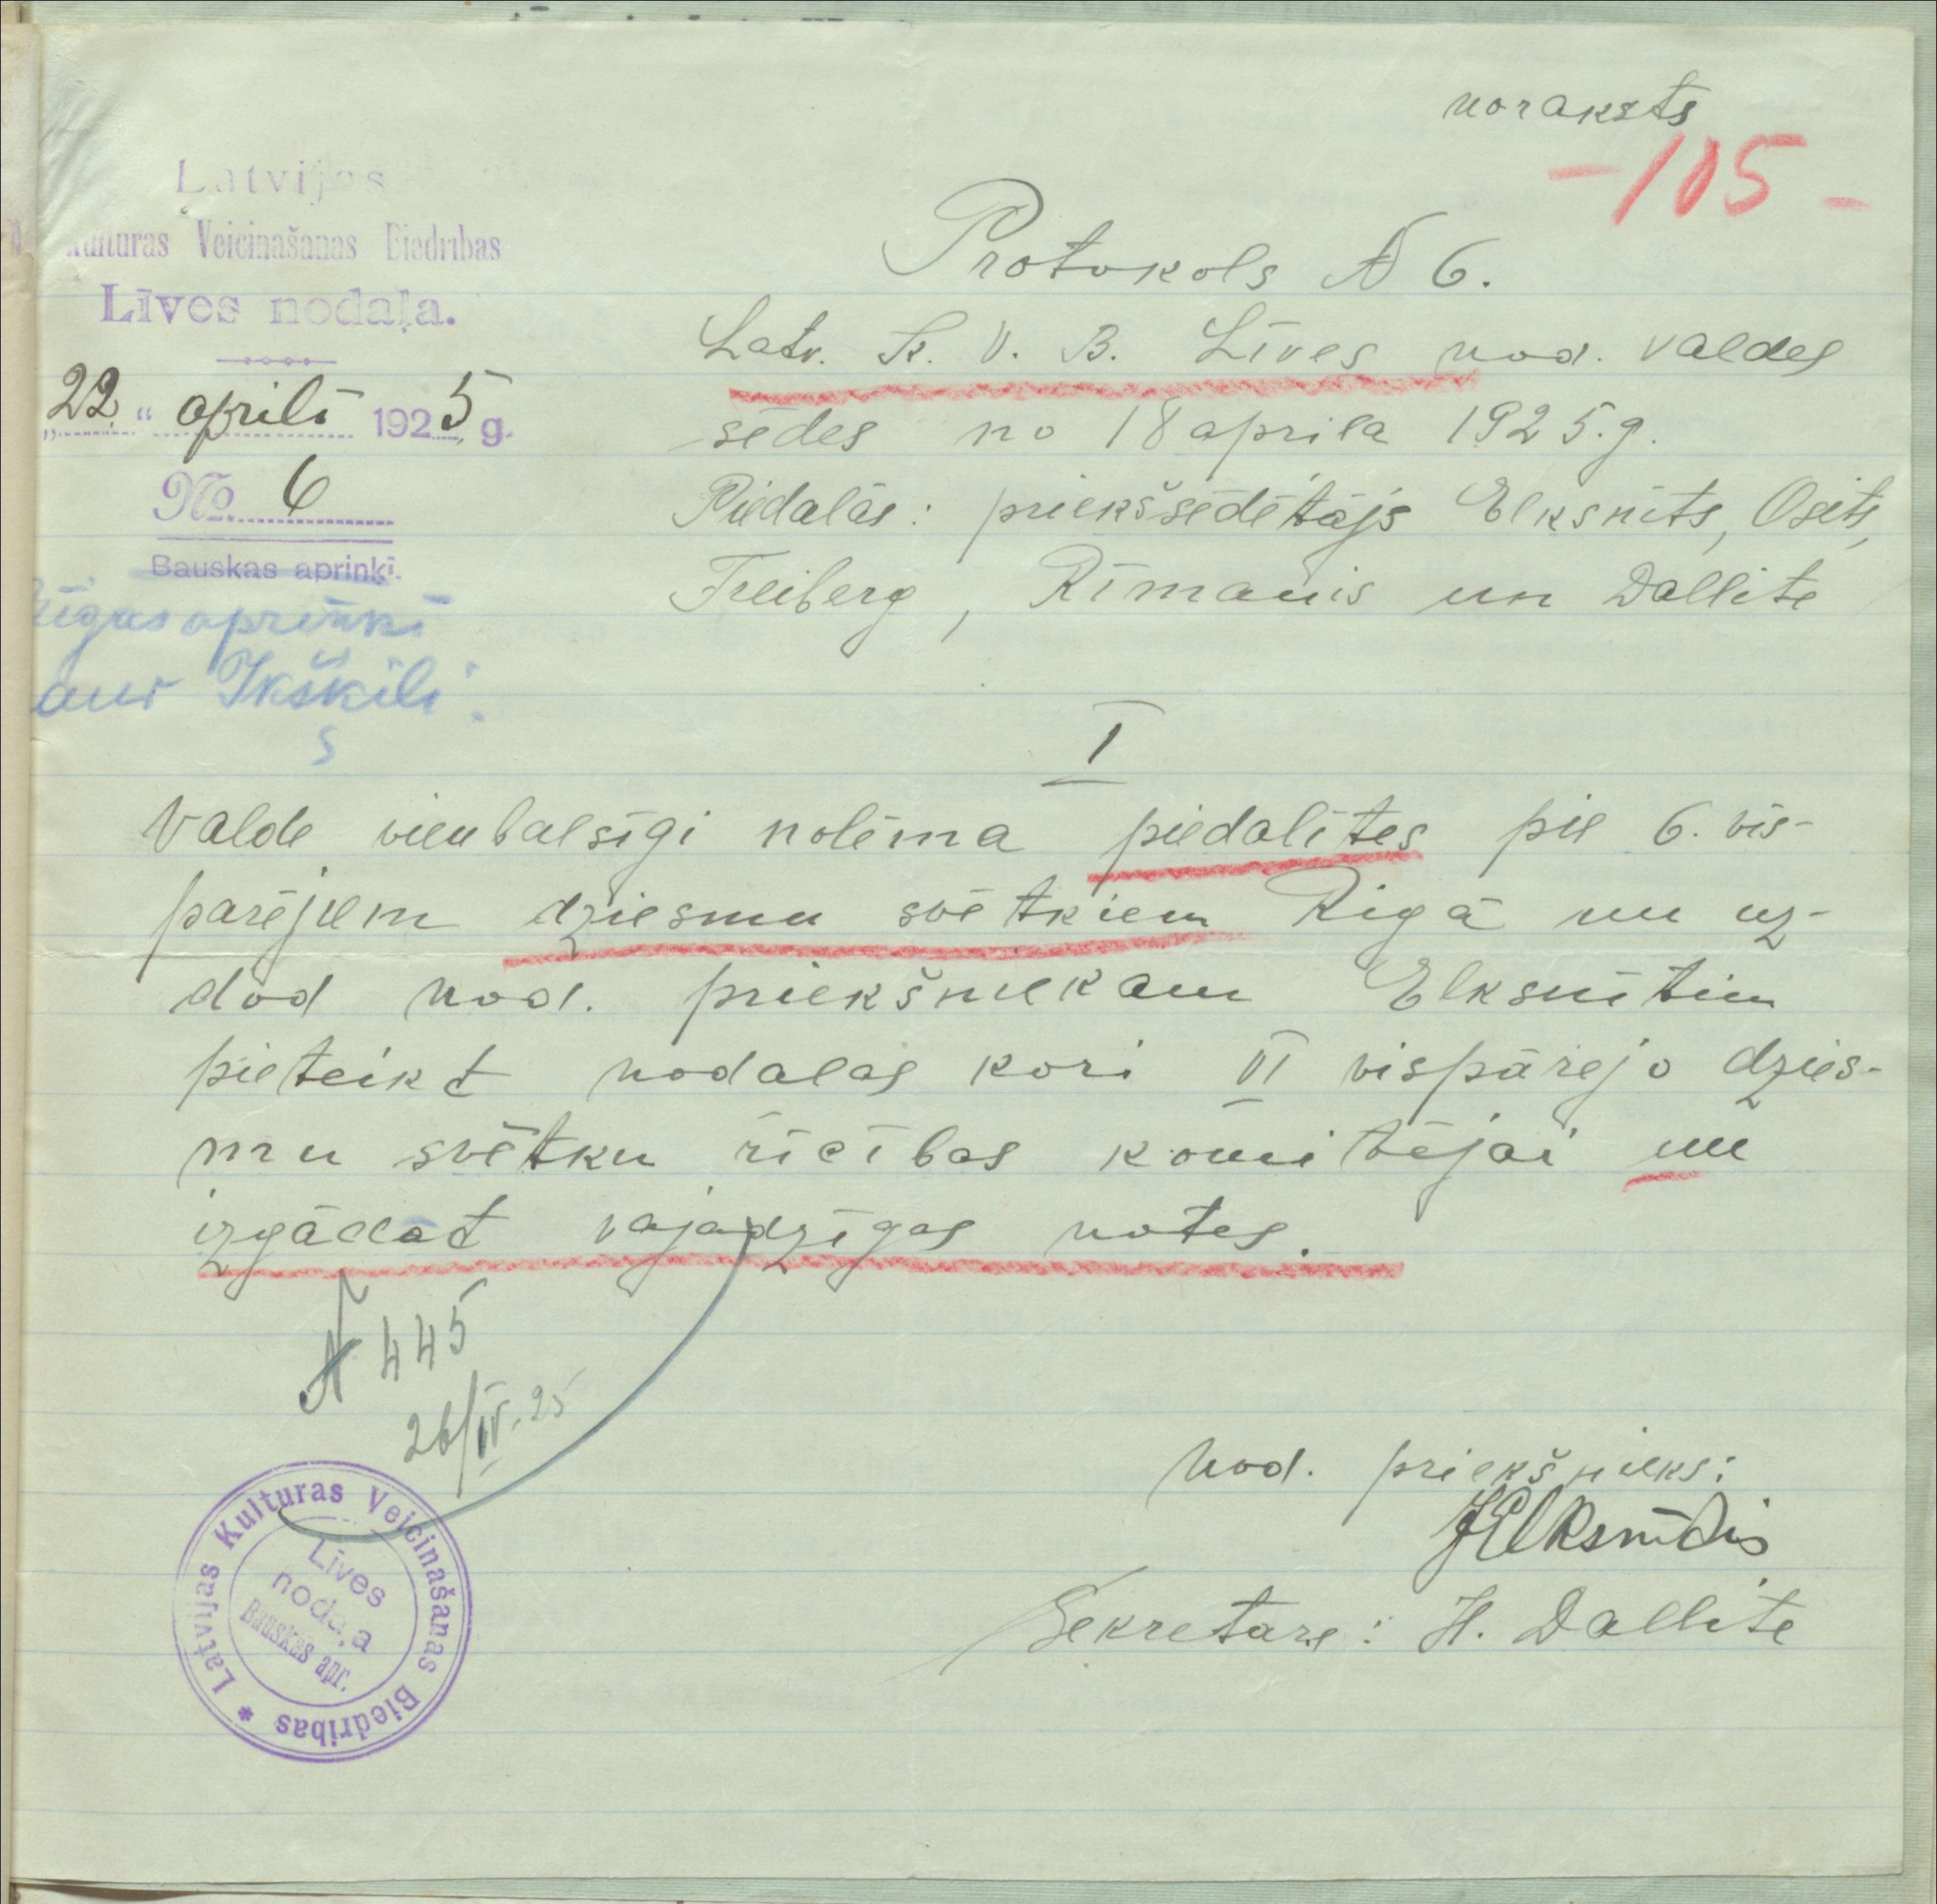 noraksts
-105-
Latvijas
Kulturas Veicinašanas Biedrības
Līves nodaļa.
"22" aprilī 1925 g.
No. 6
Bauskas apriņķī.
Rīgas apriņķī
caur Ikšķili.
Protokols N 6.
Latv. K. V. B. Līves nod. valdes
sēdes no 18 aprila 1925.g.
Piedalās: priekšsēdētājs Elksnīts, Osīts,
Freiberg, Rīmanis un Dallite
I
Valde vienbalsīgi nolēma piedalītes pie 6. vis-
parējiem dziesmu svētkiem Rigā un uz-
dod nod. priekšniekam Elksnītim
pieteikt nodalas kori VI vispārejo dzies-
mu svētku rīcības komitējai un
izgādāt vajadzīgas notes.
N 445
26/IV-25
Nod. priekšnieks:
JElksnītis
Sekretare: H. Dallite
Latvijas Kulturas Veicinašanas Biedribas *
Līves
nodaļa
Bauskas apr.